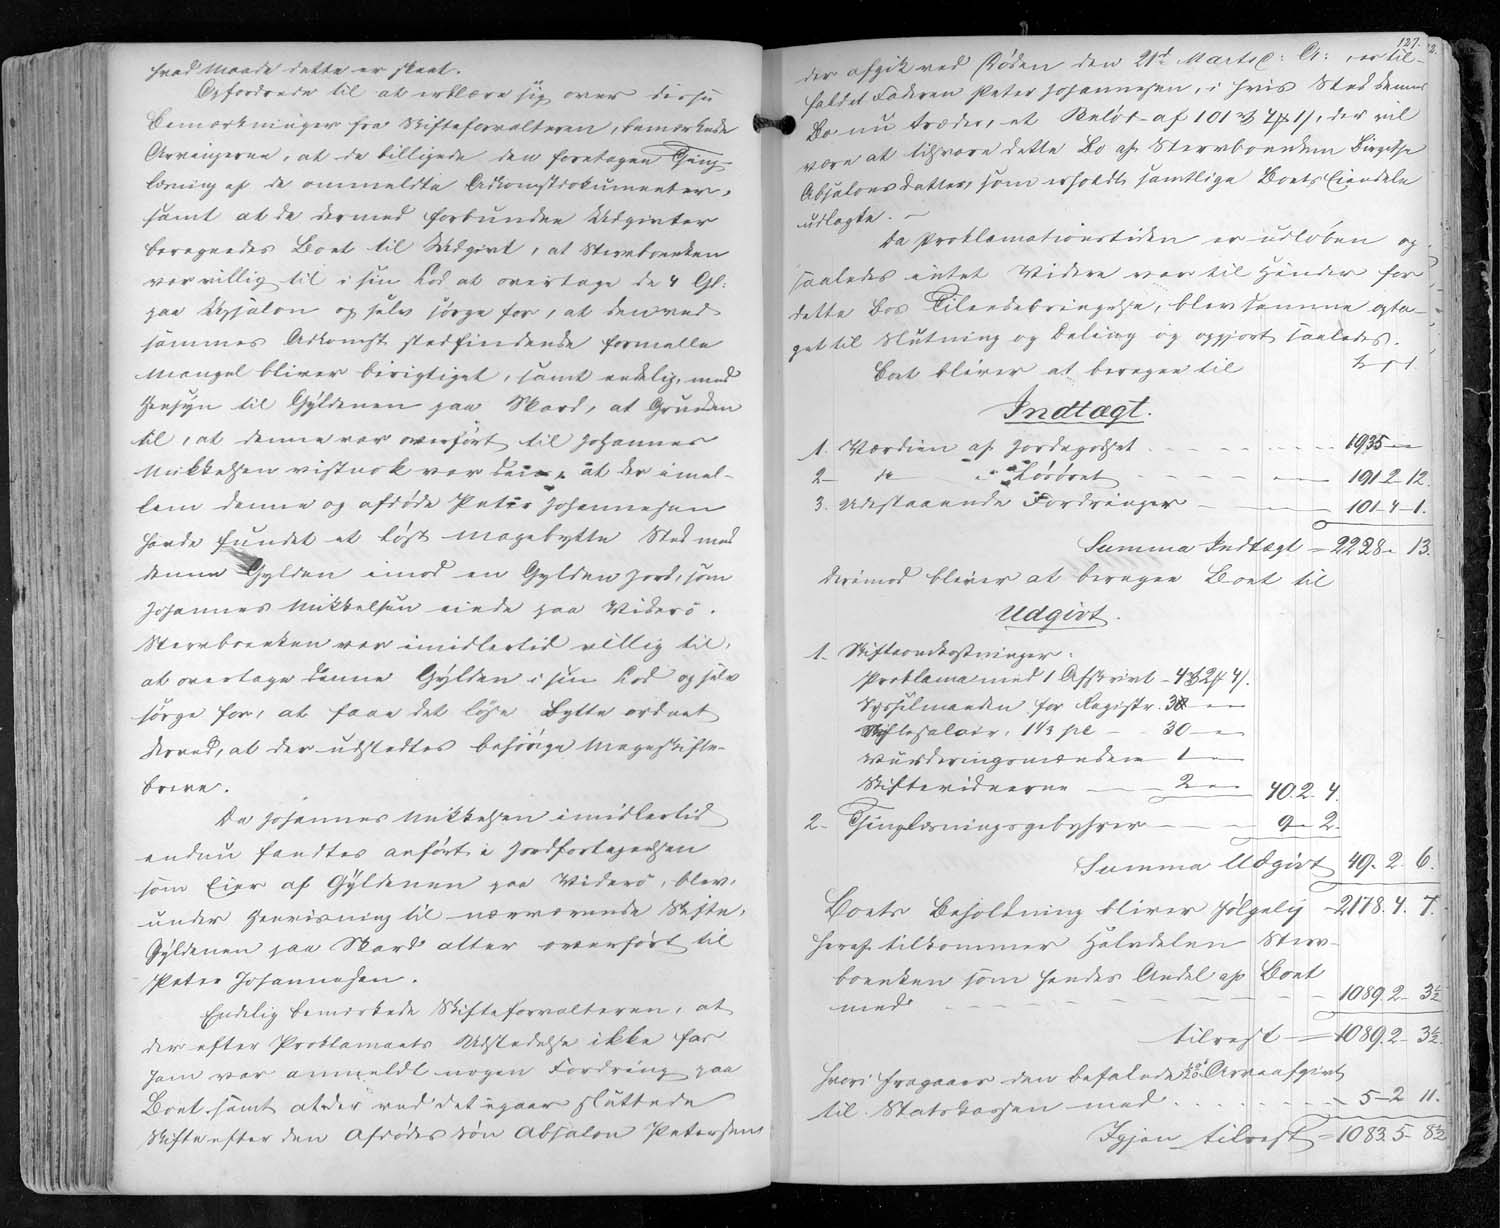 hvad Maade dette er skeet.
Opfordrede til at erklære sig over disse
Bemærkninger fra Skifteforvalteren, bemærkede
Arvingerne, at de billigede den foretagen Thing-
læsning af de ommeldte Adkomstdokumenter,
samt at de dermed forbundne Udgivter
beregnedes Boet til Udgivt, at Stervboenken
var villig til i sin Lod at overtage de 4 Gl:
paa Uppsalon og selv sørge for, at den ved
sammes Adkomst stedfindende formelle
Mangel bliver berigtiget, samt endelig, med
Hensyn til Gyldenen paa Skard, at Grunden
til, at denne var overført til Johannes
Mikkelsen vistnok var den, at der imel-
lem denne og afdøde Peter Johannesen
havde fundet et løst magebytte Sted med
denne Gylden imod en Gylden Jord, som
Johannes Mikkelsen eiede paa Viderø.
Stervboenken var imidlertid villig til,
at overtage denne Gylden i sin Lod og selv
sørge for, at faae det løse Bytte ordnet
derved, at der udstedtes behørige Mageskifte-
breve.
Da Johannes Mikkelsen imidlertid
endnu fandtes anført i Jordfortegnelsen
som Eier af Gyldenen paa Viderø, blev,
under Henvisning til nærværende Skifte,
Gyldenen paa Skard atter overført til
Peter Johannesen.
Endelig bemærkede Skifteforvalteren, at
der efter Proklamaets Udstedelse ikke for
ham var anmeldt nogen Fordring paa
Boet samt at der ved det igaar sluttede
Skifte efter den Afdødes Søn Absalon Petersen
127.
der afgik ved Døden den 21de Marts d: A: er til-
faldet Faderen Peter Johannesen, i hvis Sted denne
Bo nu træder, et Beløb af 101 rd 4 mk 1 s, der vil
være at tilsvare dette Bo af Stervboenken Birgethe
Absalonsdatter, som erholdt samtlige Boets Eiendele
udlagte. —
Da Proklamationstiden er udløben og
saaledes intet Videre var til Hinder for
dette Bos Tilendebringelse, blev samme opta-
get til Slutning og Deling og opgjort saaledes.
Boet bliver at beregne til
Indtægt.
1. Værdien af Jordegodset 1935 — —
2 — do — Løsøret 191 2 12.
3. Udestaaende Fordringer 101 4 — 1.
Summa Indtægt = 2228 — 13.
derimod bliver at beregne Boet til
Udgivt.
1. Skifteomkostninger:
Proklama med 1 Afskrivt — 4 rd 2 mk 4 s.
Sysselmanden for Registr. 3 — —
Skiftesalair, 1 1/3 pC — 30 — —
Vurderingsmændene 1 — —
Skiftevidnerne — 2 — — 40. 2. 4.
2 — Thinglæsningsgebyhrer 9 — 2.
Summa Udgivt 49. 2. 6.
Boets Beholdning bliver følgelig = 2178. 4. 7.
heraf tilkommer Halvdelen Sterv-
boenken som hendes Andel af Boet
med 1089. 2 — 3 1/2
tilrest = 1089. 2 — 3 1/2.
hvori fragaaer den befalede Arveafgivt
til Statskassen med 5 — 2 11.
Igjen tilrest = 1083. 5 — 8 1/2